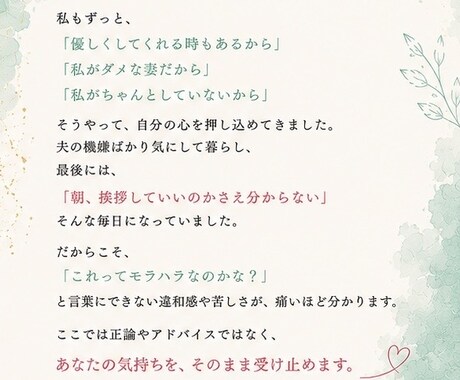 私もずっと、
「優しくしてくれる時もあるから」
「私がダメな妻だから」
「私がちゃんとしていないから」
そうやって、自分の心を押し込めてきました。
夫の機嫌ばかり気にして暮らし、
最後には、
「朝、挨拶していいのかさえ分からない」
そんな毎日になっていました。
だからこそ、
「これってモラハラなのかな？」
と言葉にできない違和感や苦しさが、痛いほど分かります。
ここでは正論やアドバイスではなく、
あなたの気持ちを、そのまま受け止めます。